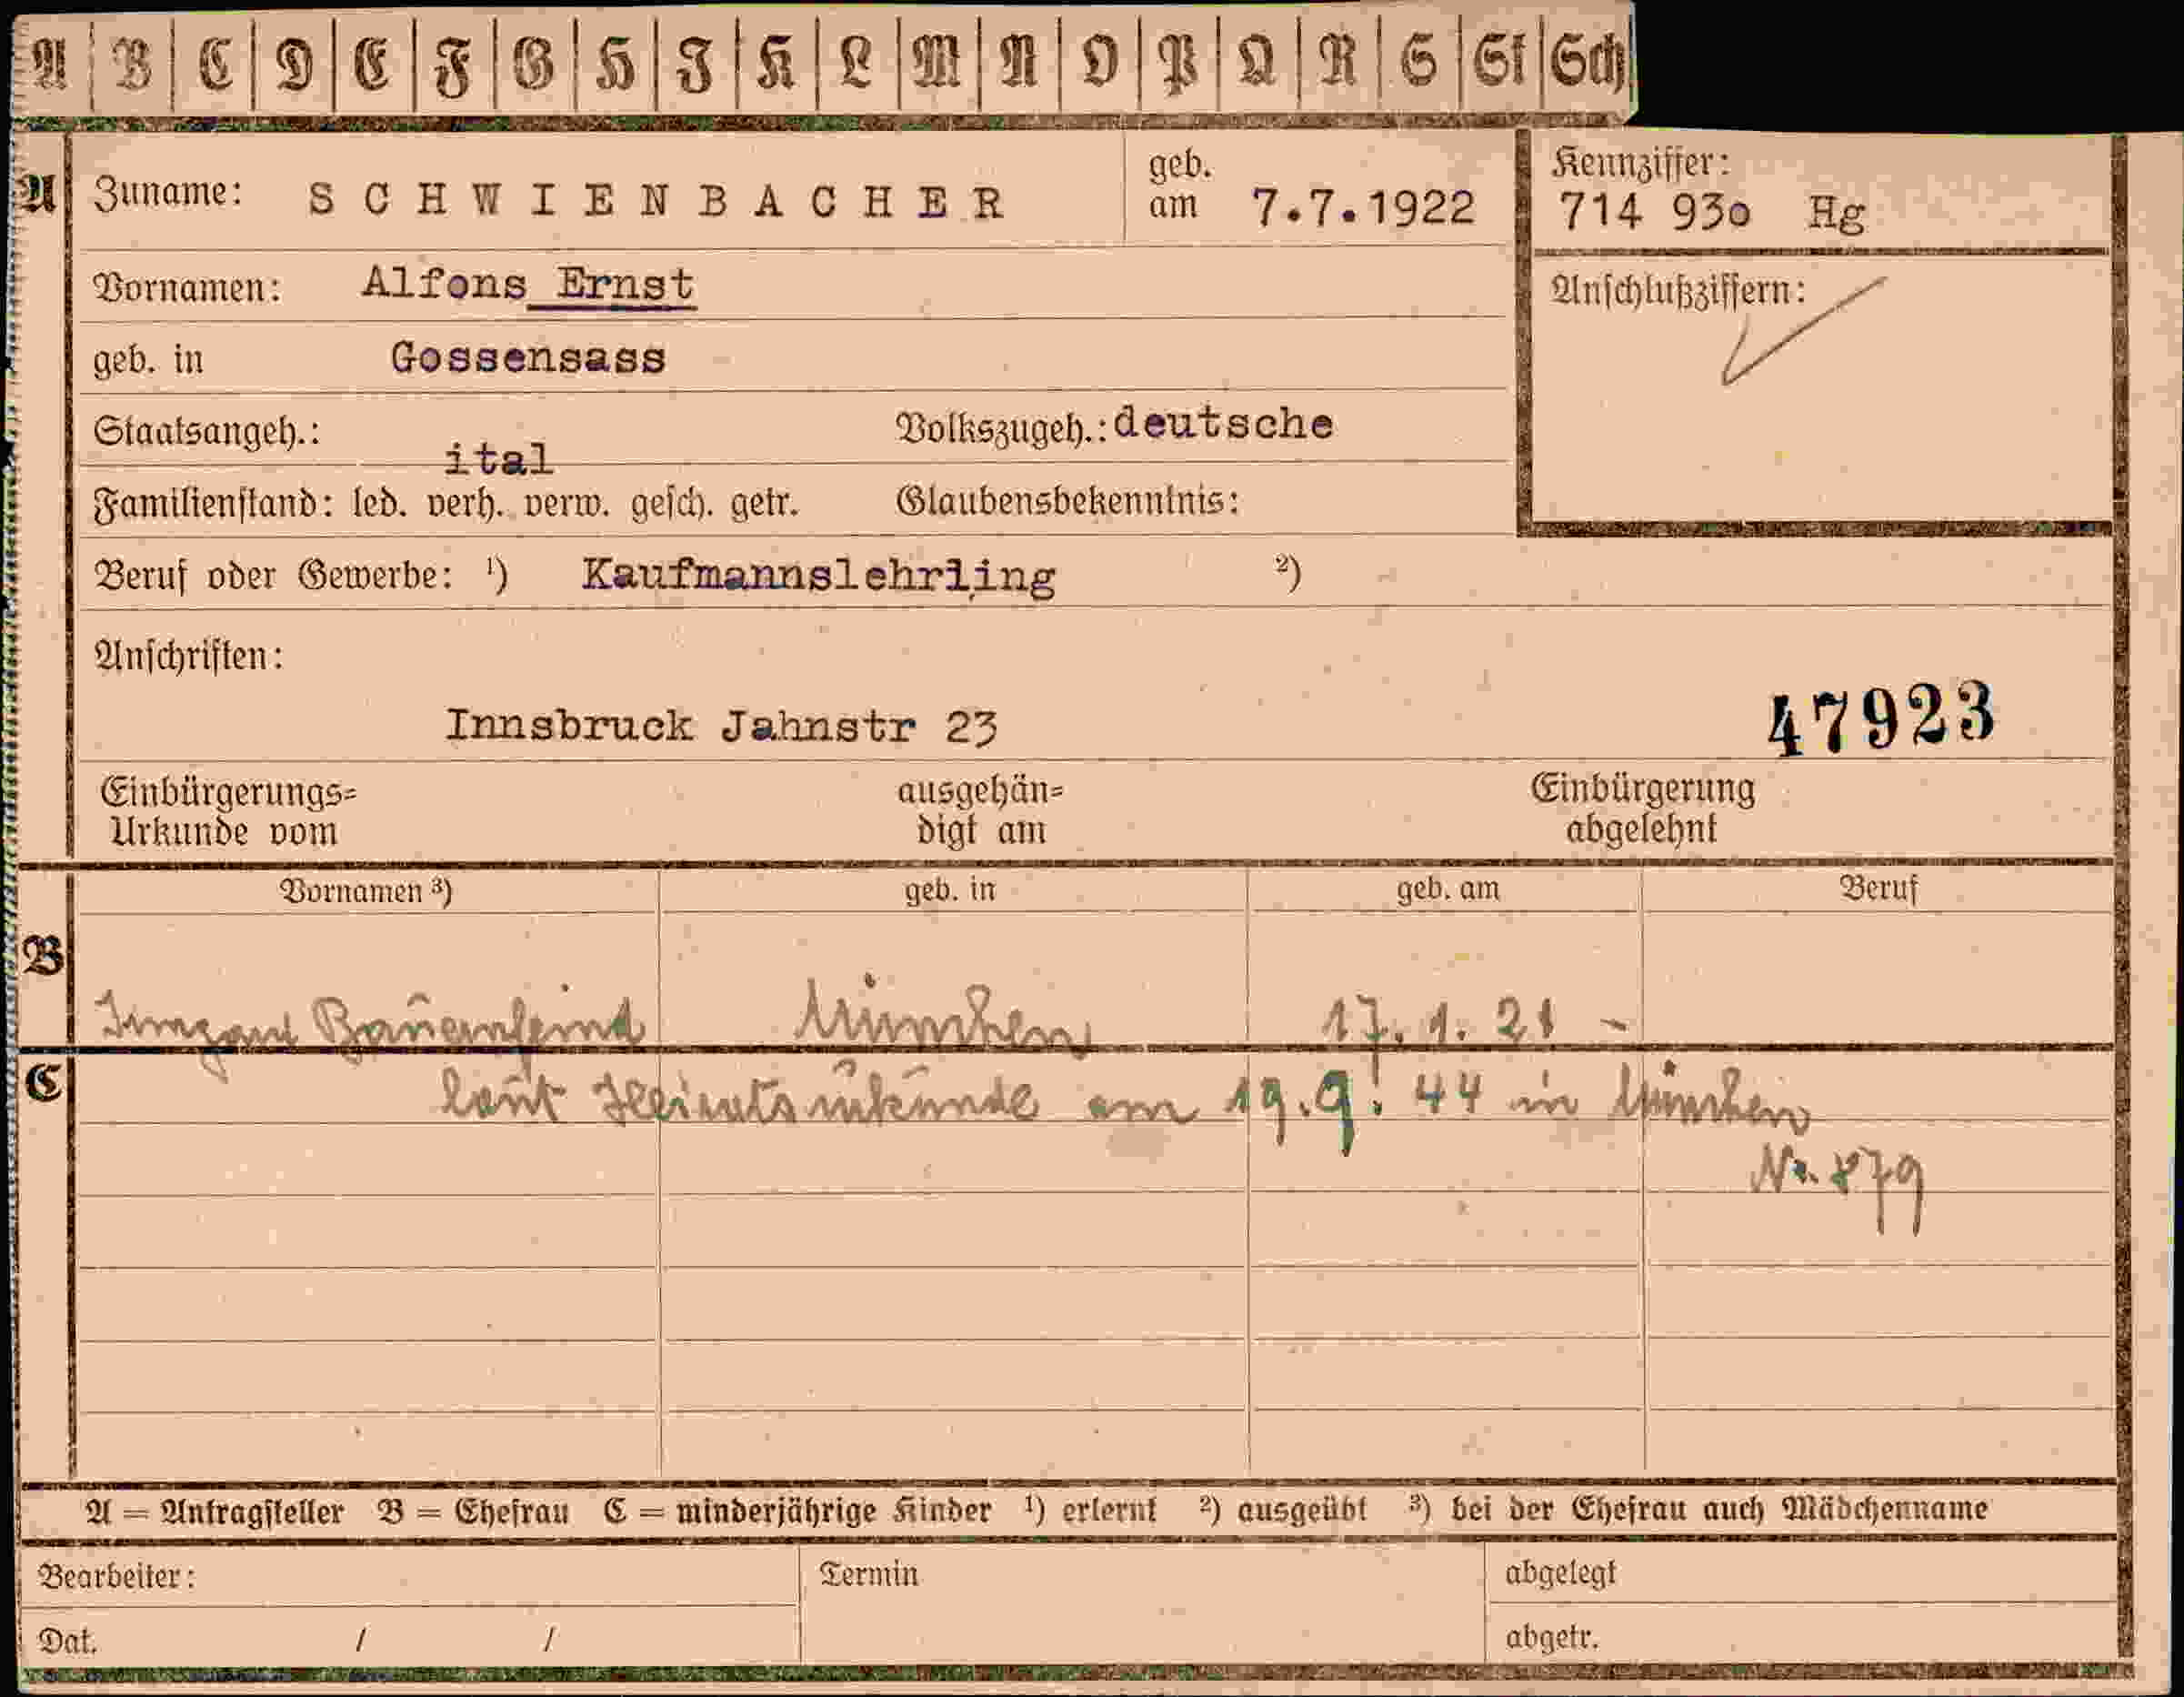 A B C D E F G H J K L M N O P Q R S St Sch
A
Zuname: SCHWIENBACHER
geb. am 7.7.1922
Kennziffer:
714 930 Hg
Vornamen: Alfons Ernst
Anschlußziffern:
geb. in Gossensass
Staatsangeh.: ital Volkszugeh.: deutsche
Familienstand: led. verh. verw. gesch. getr. Glaubensbekenntnis:
Beruf oder Gewerbe: ¹) Kaufmannslehrling ²)
Anschriften:
Innsbruck Jahnstr 23
47923
Einbürgerungs=
Urkunde vom
ausgehän=
digt am
Einbürgerung
abgelehnt
Vornamen ³) geb. in geb. am Beruf
B
Irmgard Bauernfeind München 17.1.21 -
C
laut Heiratsurkunde am 19.9.44 in München
Nr. 879
A = Antragsteller B = Ehefrau C = minderjährige Kinder ¹) erlernt ²) ausgeübt ³) bei der Ehefrau auch Mädchenname
Bearbeiter: Termin abgelegt
Dat. / / abgetr.